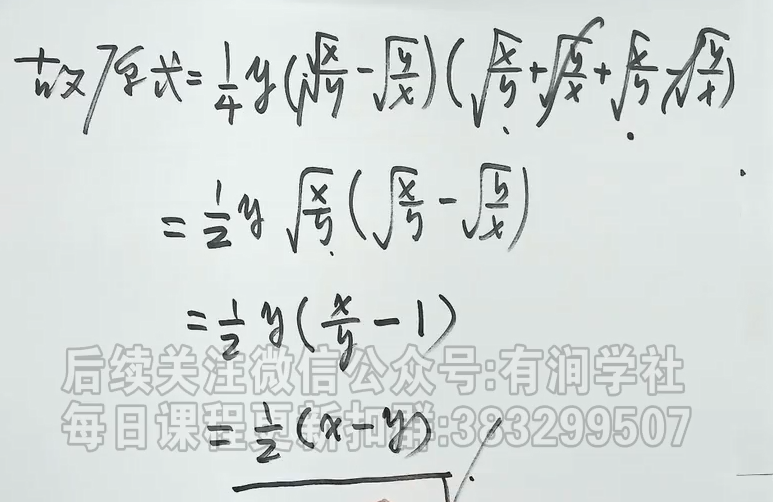 故原式=1/4 y(√(x/y) - √(y/x))(√(x/y) + √(y/x) + √(x/y) - √(y/x))
= 1/2 y √(x/y) (√(x/y) - √(y/x))
= 1/2 y (x/y - 1)
后续关注微信公众号:有润学社
= 1/2 (x-y)
每日课程更新扣群:383299507